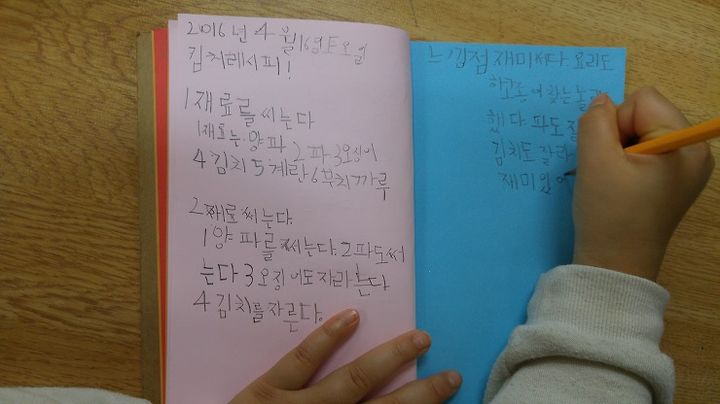 2016년 4월 16일 토요일
김치레시피!
1재료를 써는다
1재료는 양파 2파 3오징어
4김치 5계란 6부치가루
2재료써는다.
1양파를 써는다. 2파도써
는다 3오징어도 자라는다
4김치를자른다.
느낌점 재미써다. 요리도
하고
했다 파도
김치도 잘라
재미있어